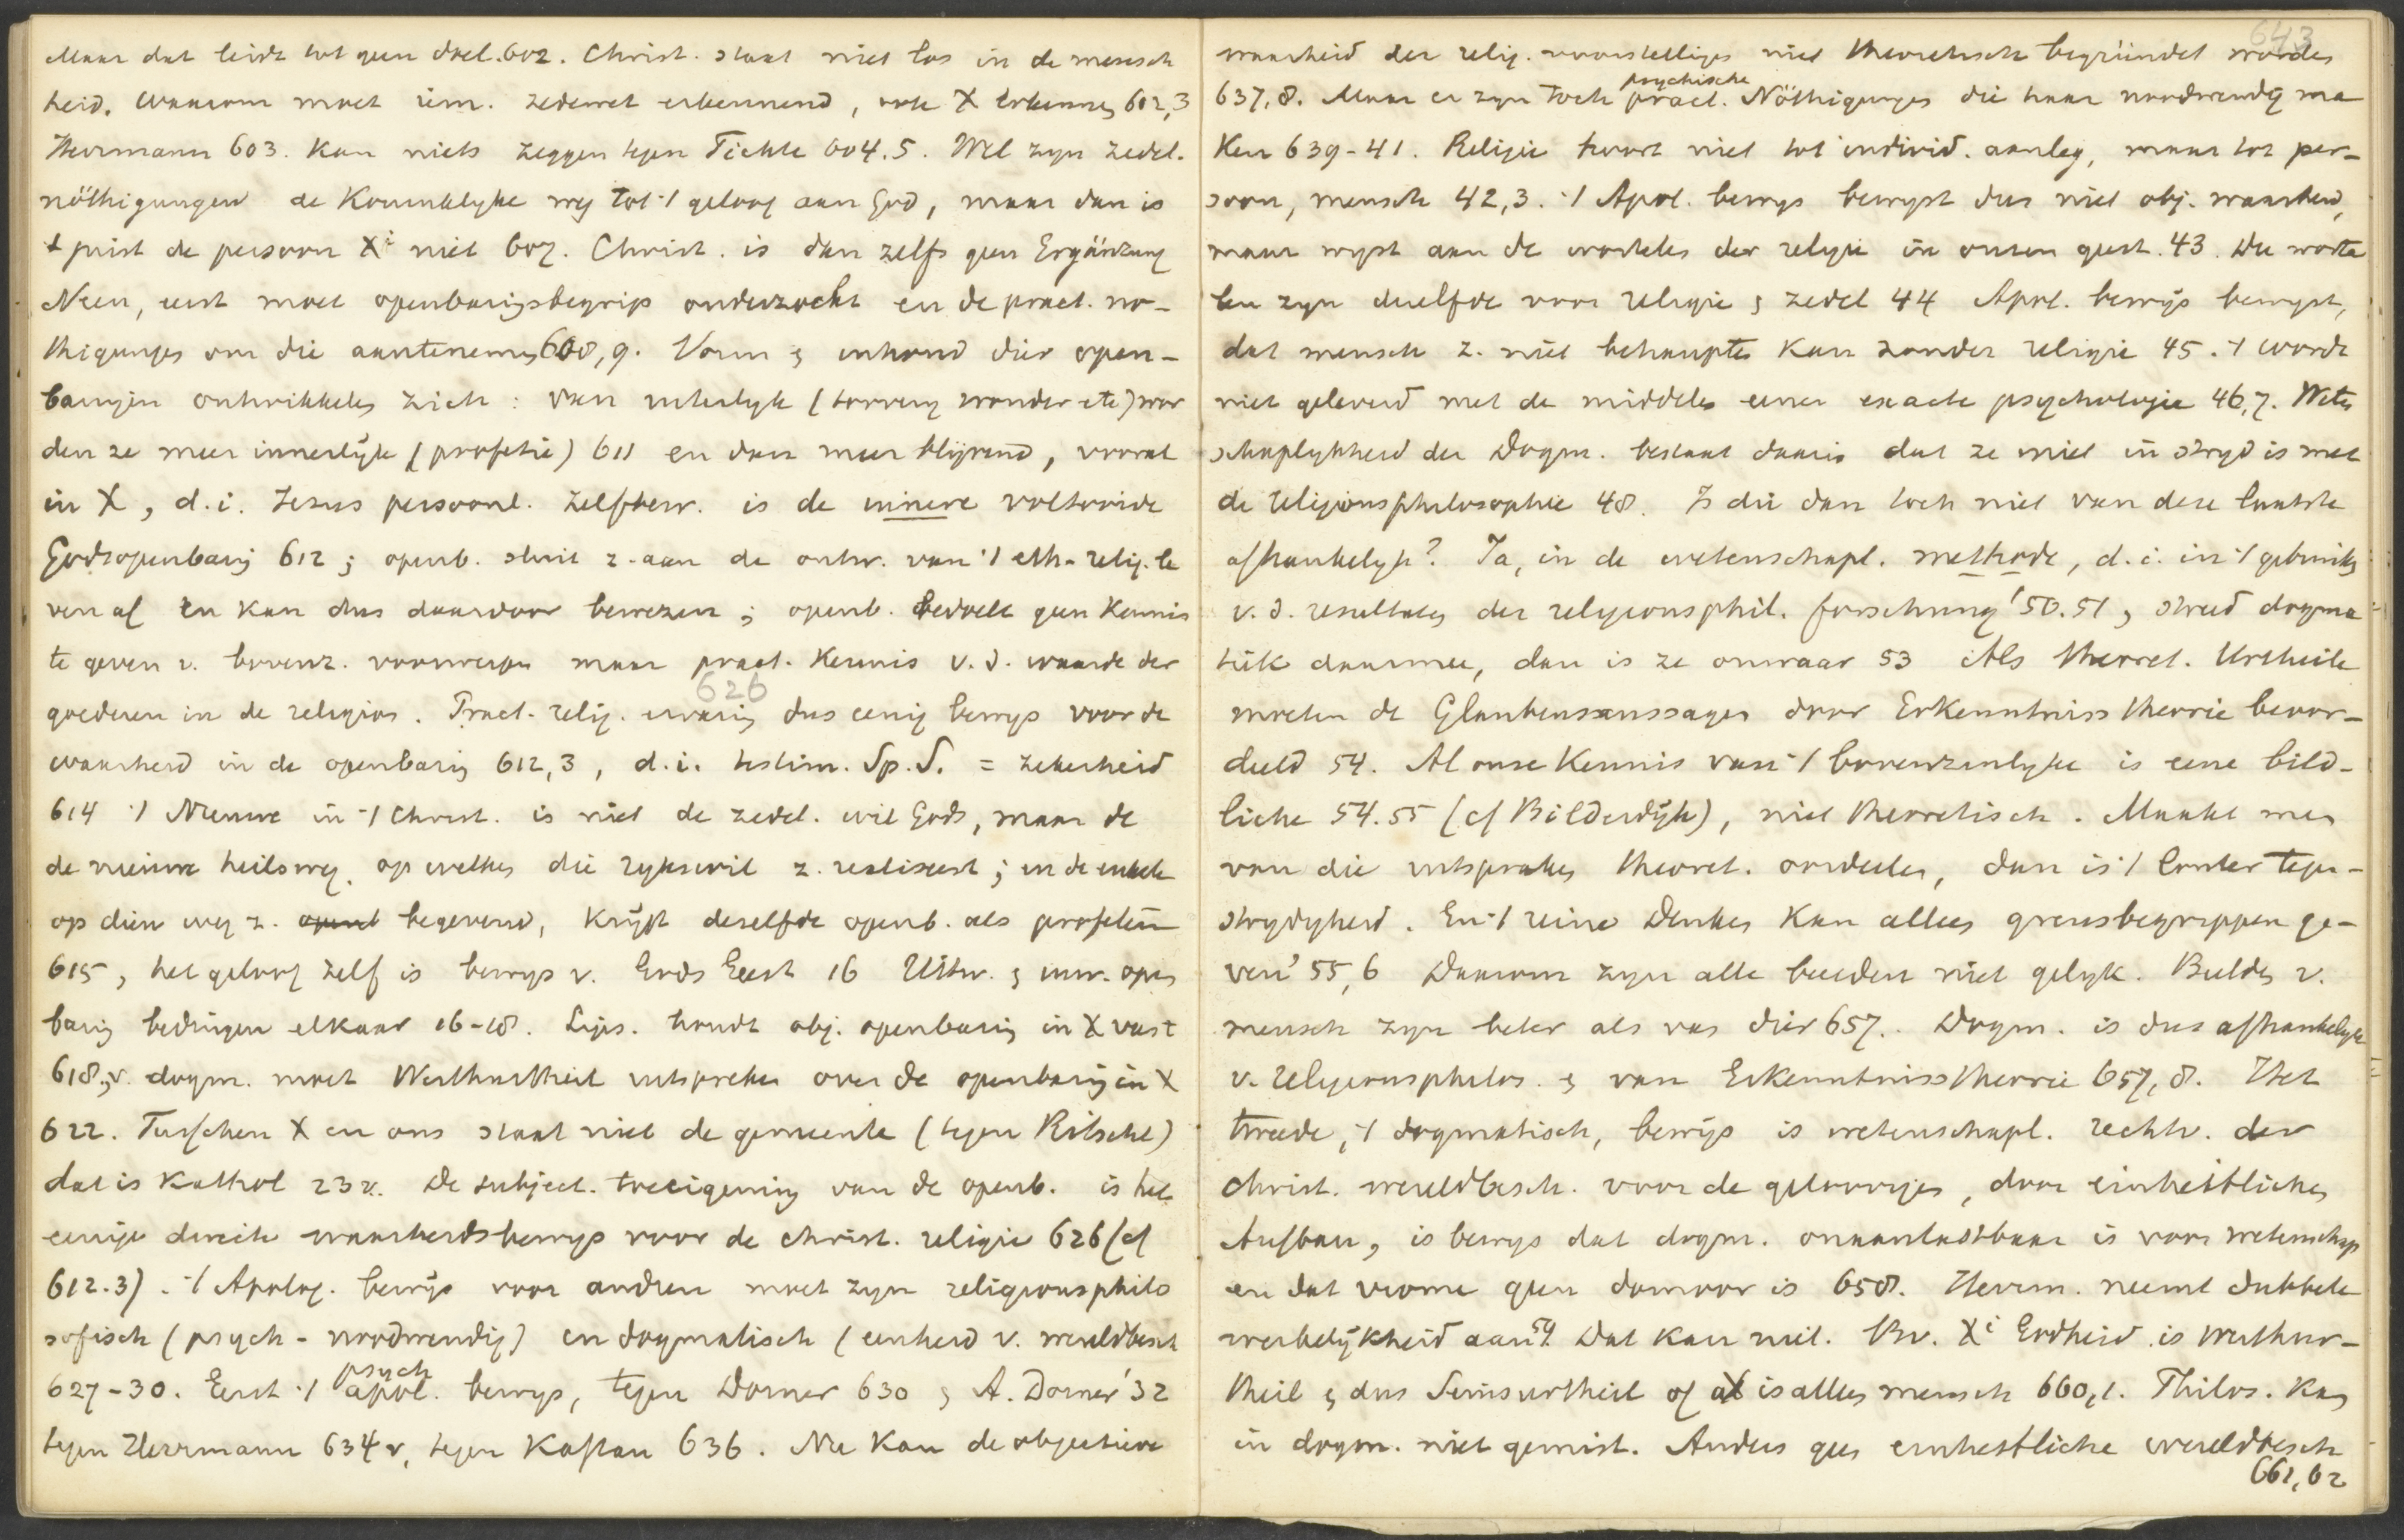 Maar dat leidt tot geen doel. 602. Christ. staat niet los in de mensch
heid. Waarom moet iem. zedewet erkennend, ook X erkennen 602,3
Herrmann 603. Kan niets zeggen tegen Fichte 604.5. Wel zyn zedel.
nöthigungen de Koninklyke weg tot 't geloof aan God, maar dan is
't juist de persoon Xi niet 607. Christ. is dan zelfs geen Ergänzung
Neen, eerst moet openbaringsbegrip onderzocht en de pract. nö-
thigungen om die aantenemen 608,9. Vorm & inhoud dier open-
baringen ontwikkelen zich: van uiterlyk ( wonder etc) wor
den ze meer innerlijk (profetie) 611 en dan meer blijvend, vooral
in X, d.i. Jezus persoonl. zelfbew. is de innere voltooide
Godsopenbaring 612; openb. sluit z. aan de ontw. van 't eth-relig. le
ven af en kan dus daardoor bewezen; openb. bedoelt geen Kennis
te geven v. bovenz. voorwerpen maar pract. Kennis v. d. waarde der
626
goederen in de religion. Pract. relig. ervaring dus eenig bewys voor de
waarheid in de openbaring 612,3, d.i. testim. Sp. S. = zekerheid
614 't Nieuwe in 't Christ. is niet de zedel. wil Gods, maar de
de nieuwe heilsweg op welken die rykswil z. realiseert; en de enkele
op dien weg z. opent begevend, krijgt dezelfde openb. als profeten
615, het geloof zelf is bewys v. Gods Geest 16 Uitw. & inw. open
baring bedingen elkaar 16-18. Lips. houdt obj. openbaring in X vast
618,v. dogm. moet Werthurtheil uitspreken over de openbaring in X
622. Tusschen X en ons staat niet de gemeente (tegen Ritschl)
dat is Kathol 23v. De subject. toeeigening van de openb. is het
eenige directe waarheidsbewys voor de christ. religie 626 (cf
612.3). 't Apolog. bewijs voor andren moet zyn religionsphilo
sofisch (psych-noodwendig) en dogmatisch (eenheid v. wereldbesch
627-30. Eerst 't psych apol. bewys, tegen Dorner 630 & A. Dorner '32
tegen Herrmann 634v, tegen Kaftan 636. Nu kan de objectieve
643
waarheid der relig. voorstellingen niet theoretisch begründet worden
637,8. Maar er zyn toch psychische pract. Nöthigungen die haar noodwendig ma
Ken 639-41. Religie hoort niet tot individ. aanleg, maar tot per-
soon, mensch 42,3. 't Apol. bewys bewyst dus niet obj. waarheid,
maar wyst aan de wortelen der religie in onzen geest. 43. Die worte
len zyn dezelfde voor religie & zedel 44 Apol. bewijs bewyst,
dat mensch z. niet behaupten kan zonder religie 45. 't wordt
niet geleverd met de middelen eener exacte psychologie 46,7. Weten
schaplykheid der Dogm. bestaat daarin dat ze niet in stryd is met
de religionsphilosophie 48. Is die dan toch niet van deze laatste
afhankelyk? Ja, in de wetenschapl. methode, d.i. in 't gebruiken
v. d. resultaten der religionsphil. forschung' 50.51, streed dogma
tiek daarmee, dan is ze onwaar 53 Als theoret. Urtheile
moeten de Glaubensaussagen door Erkenntnisstheorie beoor-
deeld 54. Al onze Kennis van 't bovenzinlyke is eene bild-
liche 54.55 (cf Bilderdijk), niet theoretisch. Maakt men
van die uitspraken theoret. oordeelen, dan is 't louter tegen-
strydigheid. En 't reine Denken kan alleen grensbegrippen ge-
ven' 55,6 Daarom zyn alle beelden niet gelyk. Beelden v.
mensch zyn beter als van dier 657. Dogm. is dus afhankelyk
v. religionsphilos. & van Erkenntnisstheorie 657,8. Het
tweede, 't dogmatisch, bewijs is wetenschapl. rechtv. der
christ. wereldbesch. voor de geloovigen, door einheitlichen
Aufbau, is bewys dat dogm. onaantastbaar is voor wetenschap
en dat vrome geen domoor is 658. Herrm. neemt dubbele
werkelijkheid aan 59. Dat kan niet. Bv. Xi Godheid is Werthur-
theil & dus Seinsurtheil of X is alleen mensch 660,1. Philos. Kan
in dogm. niet gemist. Anders geen einheitliche wereldbesch
661,62